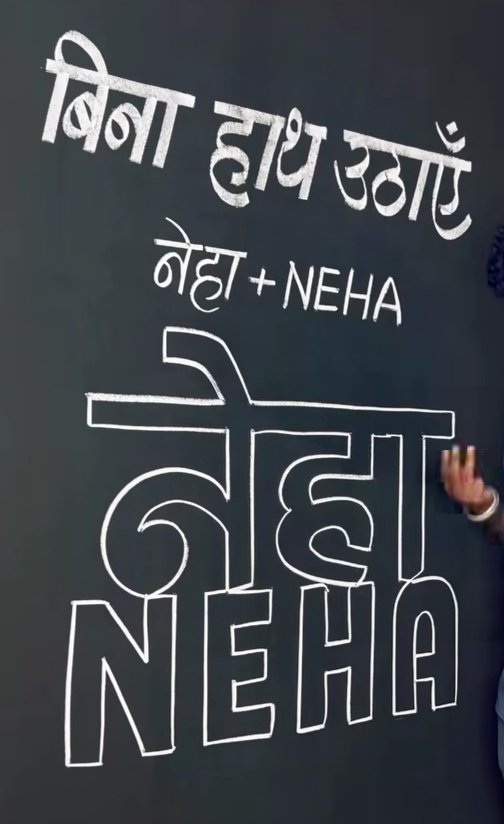 बिना हाथ उठाएँ
नेहा + NEHA
नेहा
NEHA